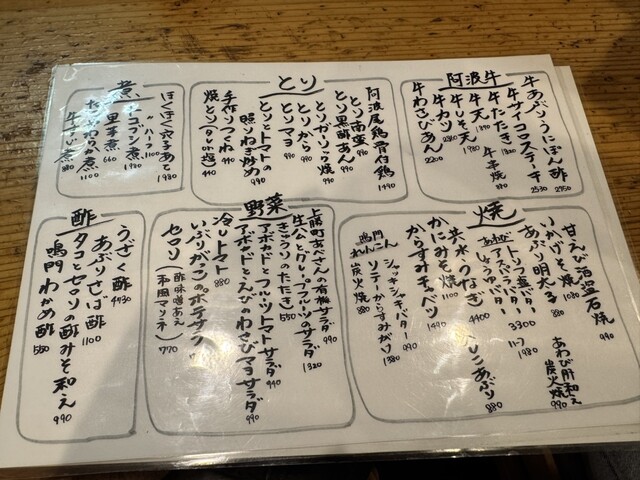 阿波牛
牛あぶりうにぽん酢 2750
牛サイコロステーキ 2530
牛たたき
牛天
牛しそ天
牛カツ
牛わさびあん 2200
牛串焼
とり
阿波尾鶏骨付鶏 1490
とり南蛮 990
とり黒酢あん 990
とりガーリック焼 990
とりから 990
とりマヨ 990
とりとトマトの
照りねぎ炒め 990
手作りつくね 440
焼とり(タレor塩) 440
煮
ほくほく穴子あて 1980
ハーフ 1100
里芋煮 660
焼
甘えび酒盗石焼 990
いかげそ焼 1080
あぶり明太子 880
あわび
3300
ハーフ 1980
しょうゆバター
あわび肝和え
炭火焼 990
共水うなぎ 4400
かにみそ焼 1100
からすみチャベツ 1490
あぶり 880
鳴門
れんこん
シャッキシャキバター 990
ソテーからすみがけ 1380
炭火焼 880
野菜
上勝町あべさんの有機サラダ 990
生ハムとグレープフルーツのサラダ 1320
きゅうりのたたき 550
アボカドとフルーツトマトサラダ 990
アボカドとえびのわさびマヨサラダ 990
冷しトマト 880
いぶりがっこのポテサラ
セロリ(酢味噌あえ
和風マリネ) 770
酢
うざく酢 4430
あぶりさば酢 1100
タコとセロリの酢みそ和え 990
鳴門わかめ酢 550